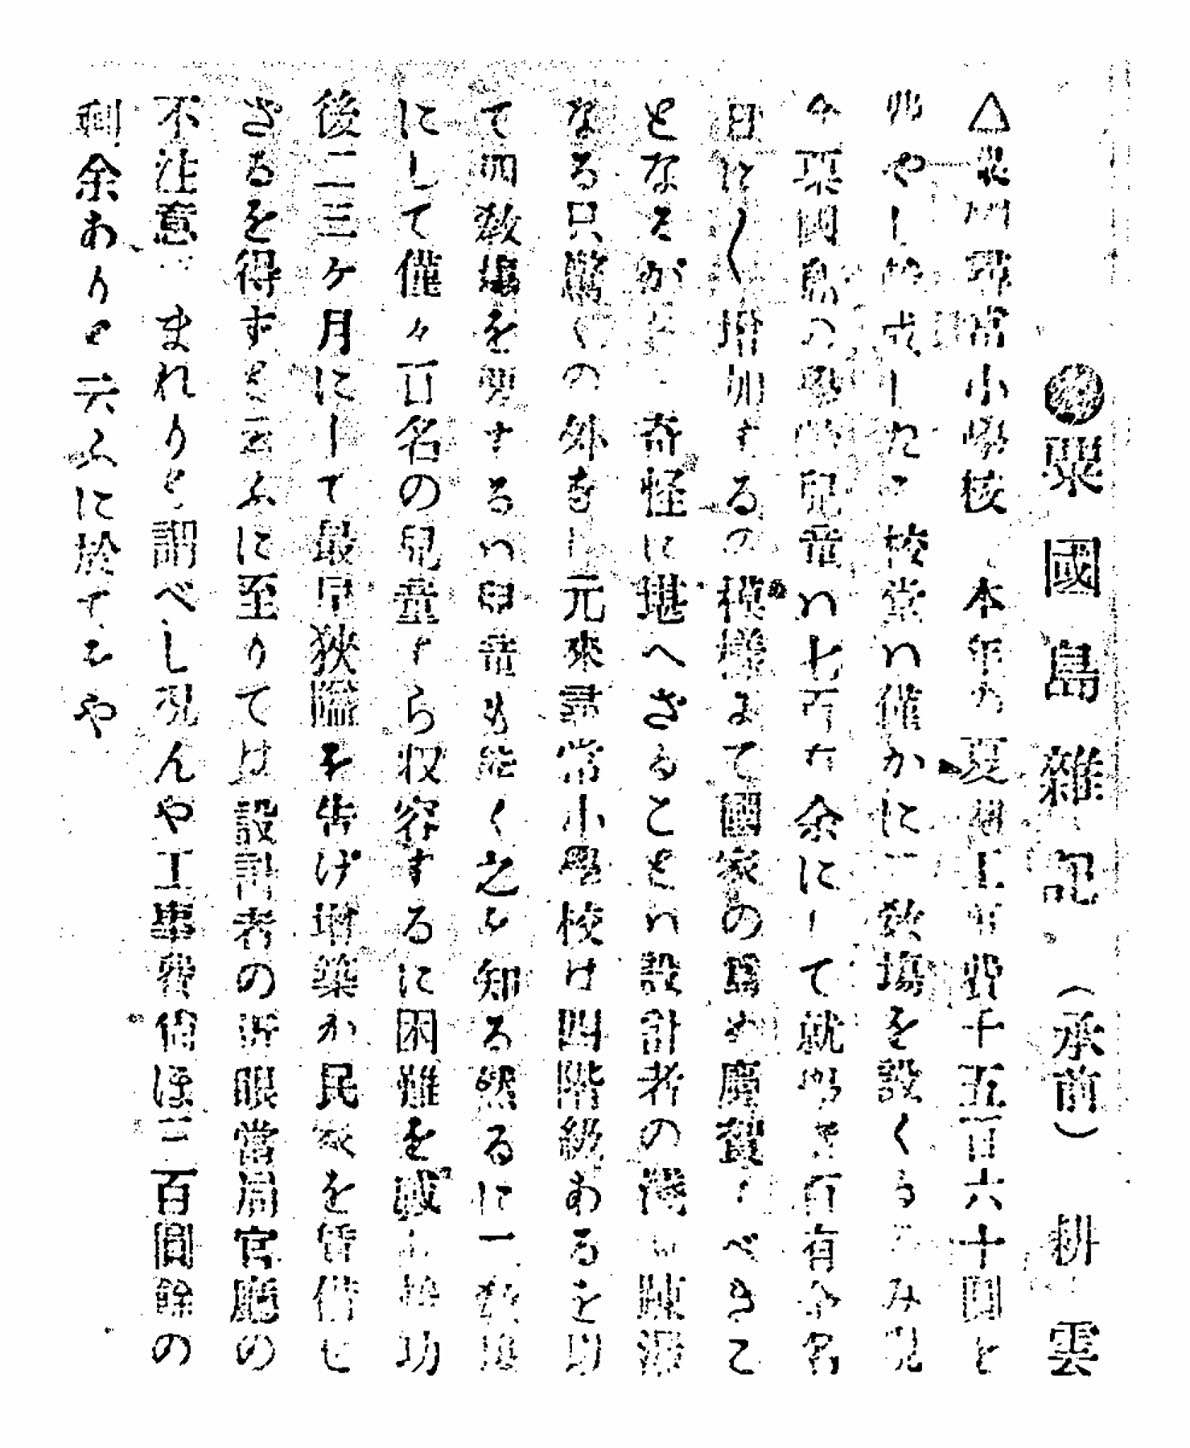 ●粟國島雜記 (承前) 耕雲
△粟國尋常小學校 本年の夏 工事費千五百六十圓と
費やし 成したる校堂ハ僅かに一敎塲を設くるのみ現
今粟國島の學齡兒童ハ七百有余にして就學 百有余名
日にく増加するの模樣にて國家の爲め慶賀 べきこ
となるが 奇怪に堪へざることハ設計者の淺 陳漏
なる只驚くの外なし元來尋常小學校は四階級あるを以
て四敎塲を要するハ兒童も能く之を知る然るに一敎塲
にして僅々百名の兒童 ら収容するに困難を感 竣功
後二三ケ月にして最早狹隘を告げ増築か民家を賃借せ
ざるを得ずと云ふに至りては設計者の近眼當局官廳の
不注意 まれりと謂べし况んや工事費尚ほ三百圓餘の
剩余ありと云ふに於てをや